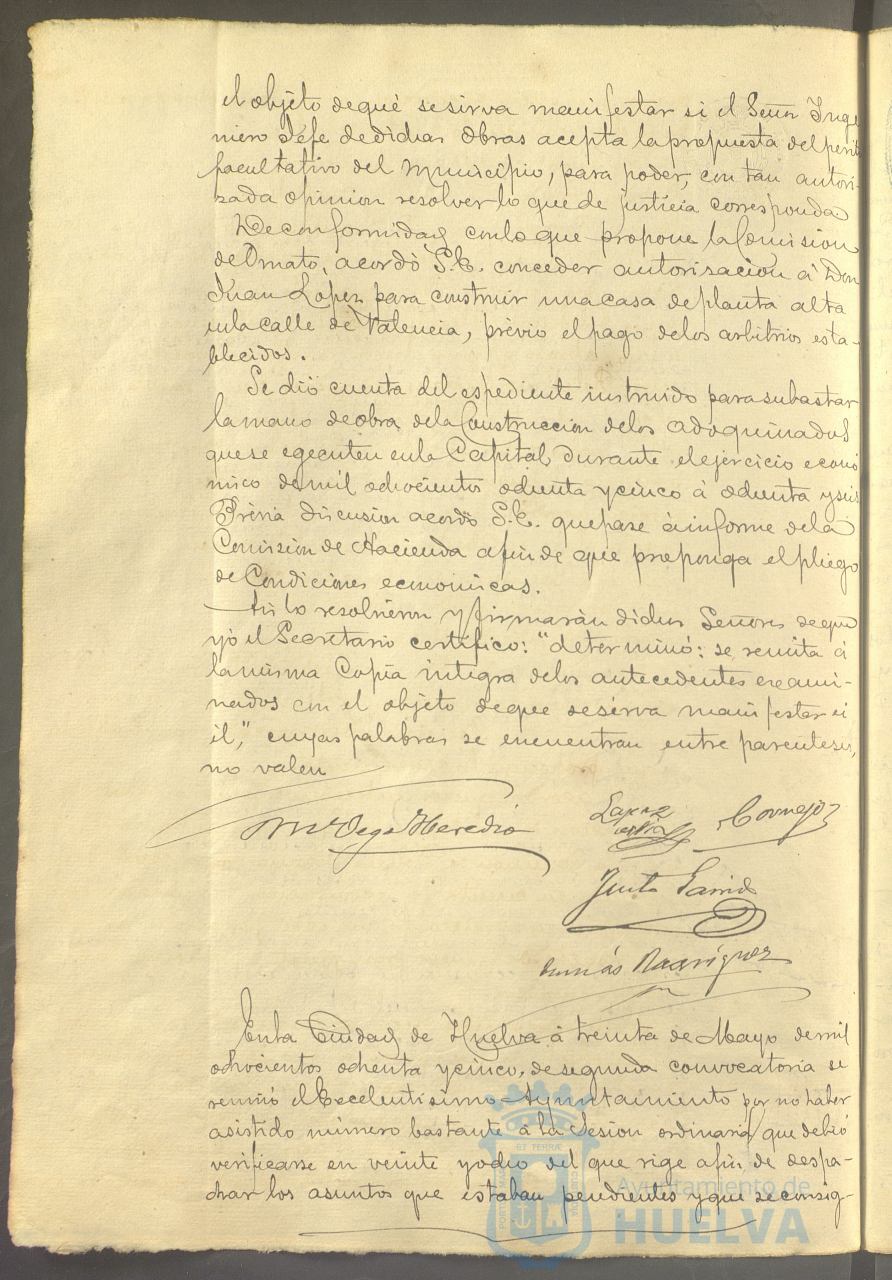 el objeto de qué se sirva manifestar si el Señor Inge
niero Jefe de dichas obras acepta la propuesta del perito
facultativo del Municipio, para poder, con tan autori-
zada opinion resolver lo que de justicia corresponda
De conformidad con lo que propone la Comision
de Ornato, acordó S.E. conceder autorisación á Don
Juan Lopez para construir una casa de planta alta
en la calle de Valencia, prévio el pago de los arbitrios esta-
blecidos.
Se dió cuenta del espediente instruido para subastar
la mano de obra de la Construccion de los adoquinados
que se egecuten en la Capital durante el ejercicio econó
mico de mil ochocientos ochenta y cinco á ochenta y seis
Prévia discusion acordó S.E. que pase á informe de la
Comision de Hacienda a fin de que proponga el pliego
de Condiciones económicas.
Asi lo resolvieron y firmarán dichos Señores de que
yó el Secretario certifico: "determinó: se remita á
la misma Copia integra de los antecedentes exami-
nados con el objeto de que se sirva manifestar si
él," cuyas palabras se encuentran entre parentesis,
no valen
Ml Vega Heredia
Lopez
Cornejo
Justo Garrido
Tomás Rodríguez
En la Ciudad de Huelva á treinta de Mayo de mil
ochocientos ochenta y cinco, de segunda convocatoria se
reunió el Excelentisimo Ayuntamiento por no haber
asistido número bastante á la Sesion ordinaria que debió
verificarse en veinte y ocho del que rige a fin de despa-
char los asuntos que estaban pendientes y que se consig-
Ayuntamiento de
HUELVA